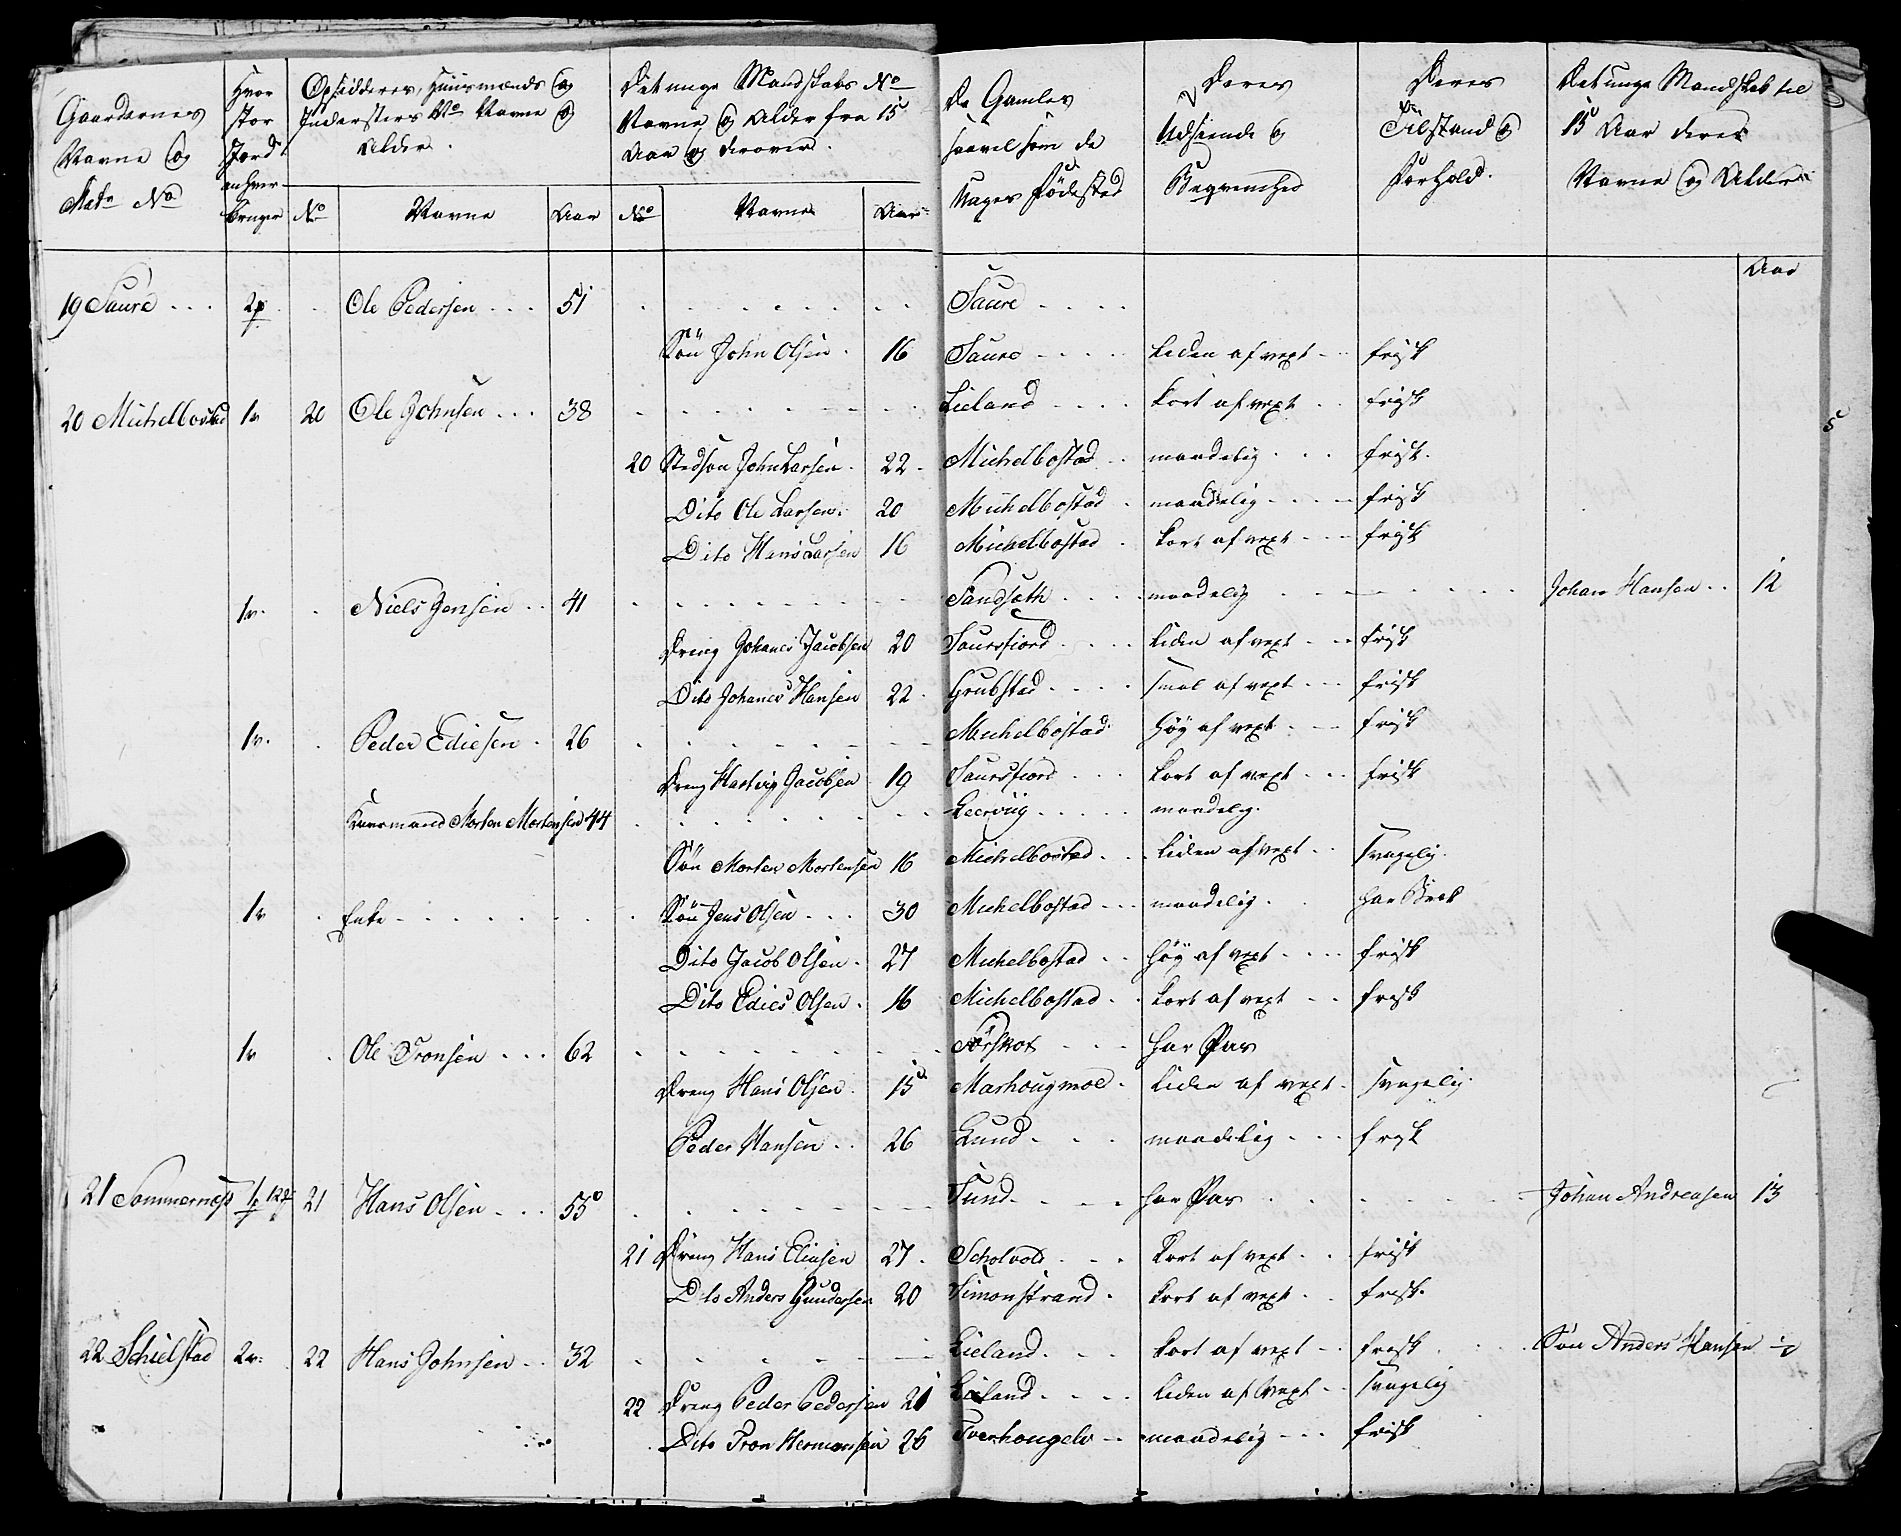 Gaardernes Navne og Matr No
Hvor stor Jord enhver bruger
Opsidderes, Huusmænds og Indersters No Navne og Alder.
Det unge Mandskabs No Navne og Alder fra 15 Aar og derover.
De Gamles saavel som de Unges Fødested
Deres Udseende og Beqvemhed
Deres Tilstand og Forhold.
Det unge Mandskab til 15 Aar deres Navne og Alder
No Navne Aar No Navne Aar
Aar
19 Saure . . . Ole Pedersen . . . 51 Saure . . . .
Søn John Olsen . 16 Saure . . . . Liden af vext . . frisk
20 Michelbostad 1v 20 Ole Johnsen . . . 38 Lieland . . . . kort af vext . . frisk
20 Stedsøn John Larsen . 22 . Michelbostad . . maadelig . . . frisk.
Dito Ole Larsen . 20 Michelbostad . maadelig . . . . frisk
Dito Hans Larsen 16 Michelbostad . kort af vext . . . frisk
1v . . Niels Jensen . . 41 Sandseth . . . . maadelig . . . Johan Hansen . . 12
Dreng Johanes Jacobsen 20 Saursfiord . . . . Liden af vext . . . frisk
Dito Johanes Hansen 22 . Grubstad . . . . smal af vext . . . frisk
1v. . Peder Ediesen . 26 Michelbostad. høy af vext . . . frisk
Dreng Hartvig Jacobsen 19 Saursfiord . . . kort af vext . . . frisk
Huusmand Morten Mortensen 44 Leerviig . . . . . maadelig.
Søn Morten Mortensen 16 Michelbostad . . . Liden af vext . . svagelig.
1v . Enke . . . . . Søn Jens Olsen . . . 30 Michelbostad . . . maadelig . . har Brok
Dito Jacob Olsen . 27 Michelbostad . . høy af vext . . . . frisk
Dito Edies Olsen . 16 Michelbostad . . kort af vext . . frisk
1v . Ole Tronsen . . . 62 Førskox . . . har Pas
Dreng Hans Olsen . 15 Marhougmoe . Liden af vext . svagelig.
Peder Hansen . . 26 Lund . . . maadelig . . . frisk
21 Sommernæss 21 Hans Olsen . . . 55 Sund . . . . har Pas . . . . Johan Andreasen 13
21 Dreng Hans Eliasen 27 . Scholvold . . . kort af vext . . frisk
Dito Anders Gundersen 20 Simonstrand . kort af vext . . frisk.
22 Schielstad 2v. . 22 Hans Johnsen . . 32 Lieland . . . kort af vext . . frisk . . . Søn Anders Hansen
22 Dreng Peder Pedersen 21 Lieland . . . . Liden af Vext . . svagelig
Dito Tron Hermansen 26 Tverhougelv . . maadelig . . . frisk